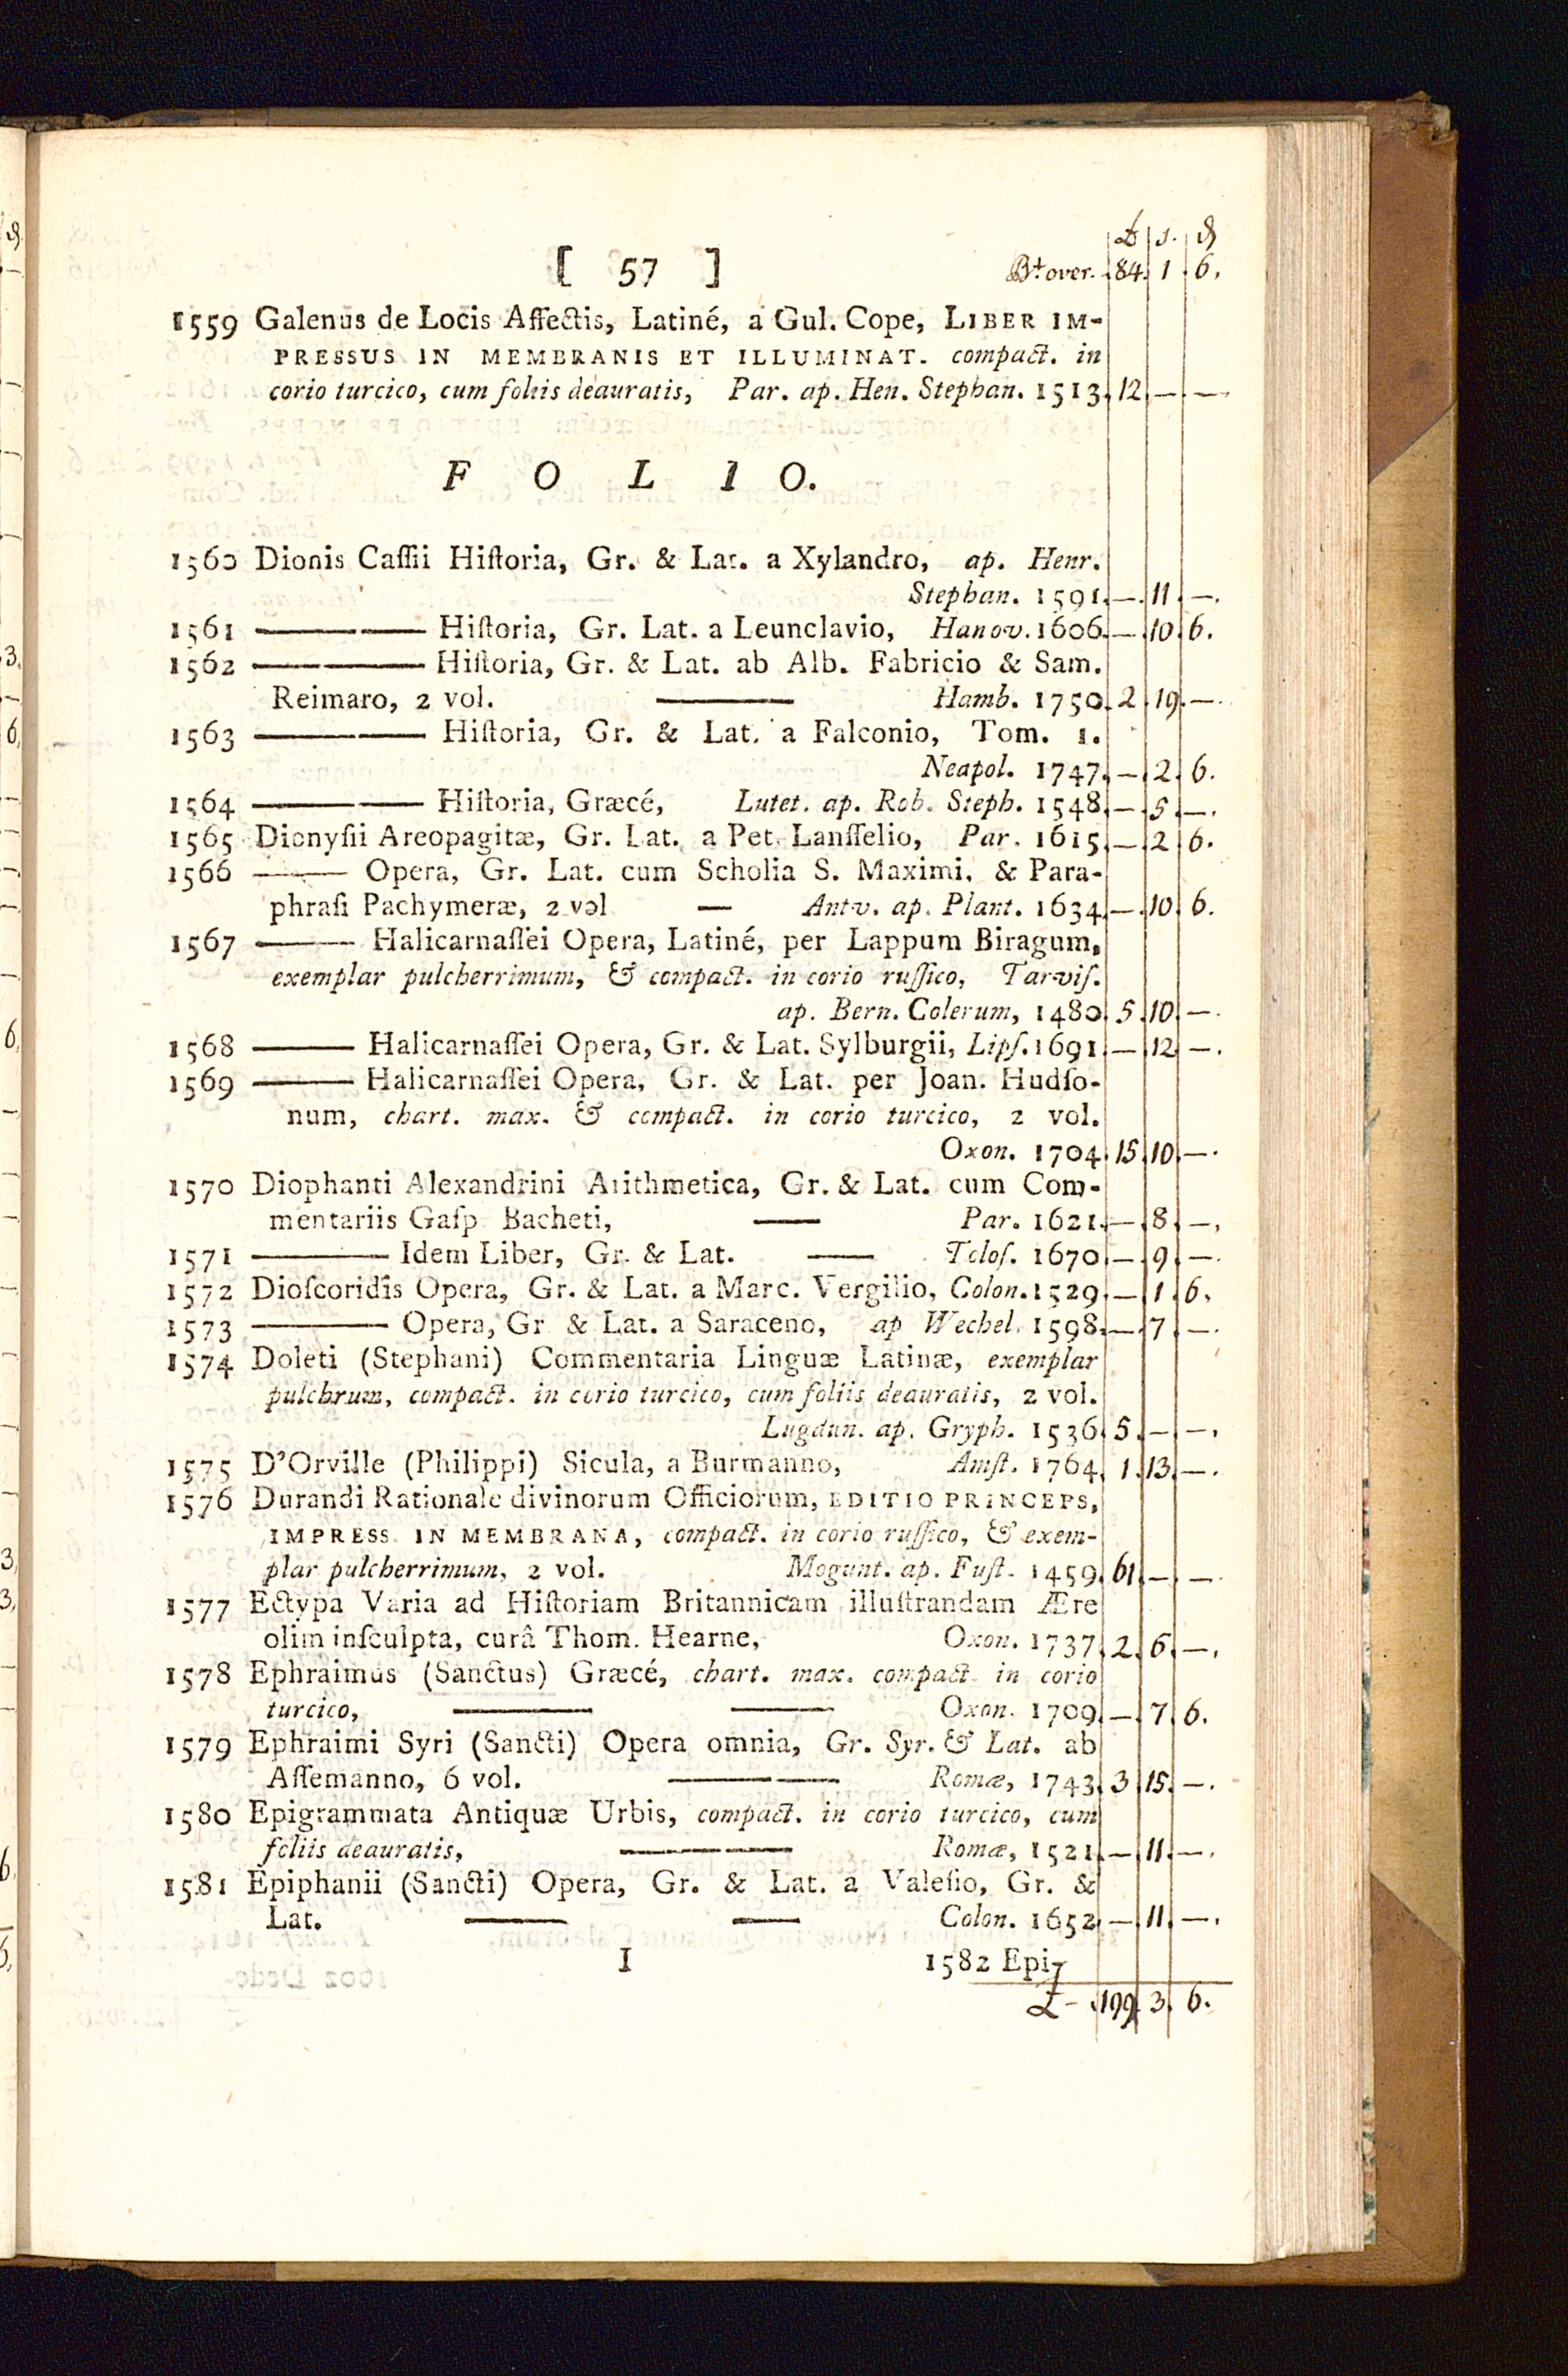 £ s. d
[ 57 ] Bt over. 84. 1. 6.
1559 Galenus de Locis Affectis, Latiné, a Gul. Cope, LIBER IM-
PRESSUS IN MEMBRANIS ET ILLUMINAT. compact. in
corio turcico, cum foliis deauratis, Par. ap. Hen. Stephan. 1513. 12. — —
F O L I O.
1560 Dionis Caſſii Hiſtoria, Gr. & Lat. a Xylandro, ap. Henr.
Stephan. 1591. — 11. —.
1561 ——— Hiſtoria, Gr. Lat. a Leunclavio, Hanov. 1606. — 10. 6.
1562 ——— Hiſtoria, Gr. & Lat. ab Alb. Fabricio & Sam.
Reimaro, 2 vol. ——— Hamb. 1750. 2. 19. —.
1563 ——— Hiſtoria, Gr. & Lat. a Falconio, Tom. 1.
Neapol. 1747. — 2. 6.
1564 ——— Hiſtoria, Græcé, Lutet. ap. Rob. Steph. 1548. — 5. —.
1565 Dionyſii Areopagitæ, Gr. Lat. a Pet. Lanſſelio, Par. 1615. — 2. 6.
1566 ——— Opera, Gr. Lat. cum Scholia S. Maximi, & Para-
phraſi Pachymeræ, 2 vol — Antv. ap. Plant. 1634. — 10. 6.
1567 ——— Halicarnaſſei Opera, Latiné, per Lappum Biragum,
exemplar pulcherrimum, & compact. in corio ruſſico, Tarviſ.
ap. Bern. Colerum, 1480. 5. 10. —.
1568 ——— Halicarnaſſei Opera, Gr. & Lat. Sylburgii, Lipſ. 1691. — 12. —.
1569 ——— Halicarnaſſei Opera, Gr. & Lat. per Joan. Hudſo-
num, chart. max. & compact. in corio turcico, 2 vol.
Oxon. 1704. 15. 10. —.
1570 Diophanti Alexandrini Arithmetica, Gr. & Lat. cum Com-
mentariis Gaſp. Bacheti, —— Par. 1621. — 8. —,
1571 ——— Idem Liber, Gr. & Lat. —— Toloſ. 1670. — 9. —.
1572 Dioſcoridis Opera, Gr. & Lat. a Marc. Vergilio, Colon. 1529. — 1. 6.
1573 ——— Opera, Gr & Lat. a Saraceno, ap Wechel. 1598. — 7. —.
1574 Doleti (Stephani) Commentaria Linguæ Latinæ, exemplar
pulchrum, compact. in corio turcico, cum foliis deauratis, 2 vol.
Lugdun. ap. Gryph. 1536. 5. — —.
1575 D'Orville (Philippi) Sicula, a Burmanno, Amſt. 1764. 1. 13. —.
1576 Durandi Rationale divinorum Officiorum, EDITIO PRINCEPS,
IMPRESS. IN MEMBRANA, compact. in corio ruſſico, & exem-
plar pulcherrimum, 2 vol. Mogunt. ap. Fuſt. 1459. 61. — —.
1577 Ectypa Varia ad Hiſtoriam Britannicam illuſtrandam Ære
olim inſculpta, curâ Thom. Hearne, Oxon. 1737. 2. 6. —.
1578 Ephraimus (Sanctus) Græcé, chart. max. compact. in corio
turcico, ——— ——— Oxon. 1709. — 7. 6.
1579 Ephraimi Syri (Sancti) Opera omnia, Gr. Syr. & Lat. ab
Aſſemanno, 6 vol. ——— Romæ, 1743. 3. 15. —.
1580 Epigrammata Antiquæ Urbis, compact. in corio turcico, cum
foliis deauratis, ——— Romæ, 1521. — 11. —.
1581 Epiphanii (Sancti) Opera, Gr. & Lat. a Valeſio, Gr. &
Lat. ——— —— Colon. 1652. — 11. —.
I 1582 Epi
£ - 199. 3. 6.